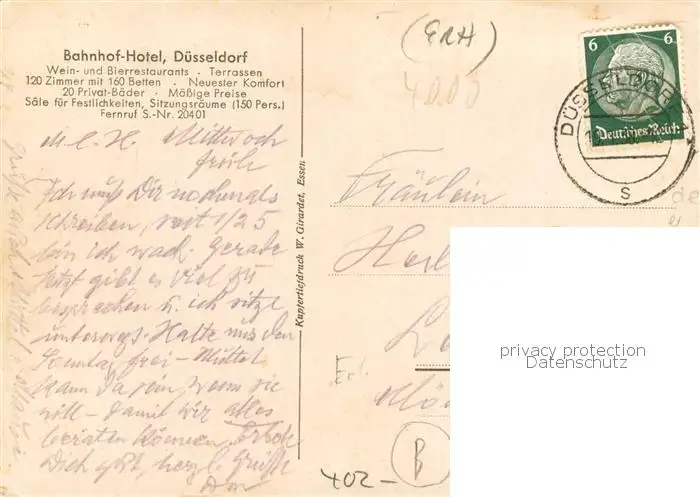 Bahnhof-Hotel, Düsseldorf
Wein- und Bierrestaurants · Terrassen
120 Zimmer mit 160 Betten · Neuester Komfort
20 Privat-Bäder · Mäßige Preise
Säle für Festlichkeiten, Sitzungsräume (150 Pers.)
Fernruf S.-Nr. 20401
M. l. H. Mittwoch
früh
Ich muß Dir nochmals
schreiben, seit 1/2 5
bin ich wach. Gerade
jetzt gibt es viel zu
besprechen u. ich sitze
unterwegs. Halte nur den
Sonntag frei – Mutter
kann da sein, wenn sie
will – damit wir alles
beraten können.
Dich
Kupfertiefdruck W. Girardet, Essen
(ERH)
4000
6 6
Deutsches Reich
DÜSSELDORF
S
Fräulein
privacy protection
Datenschutz
B
402-